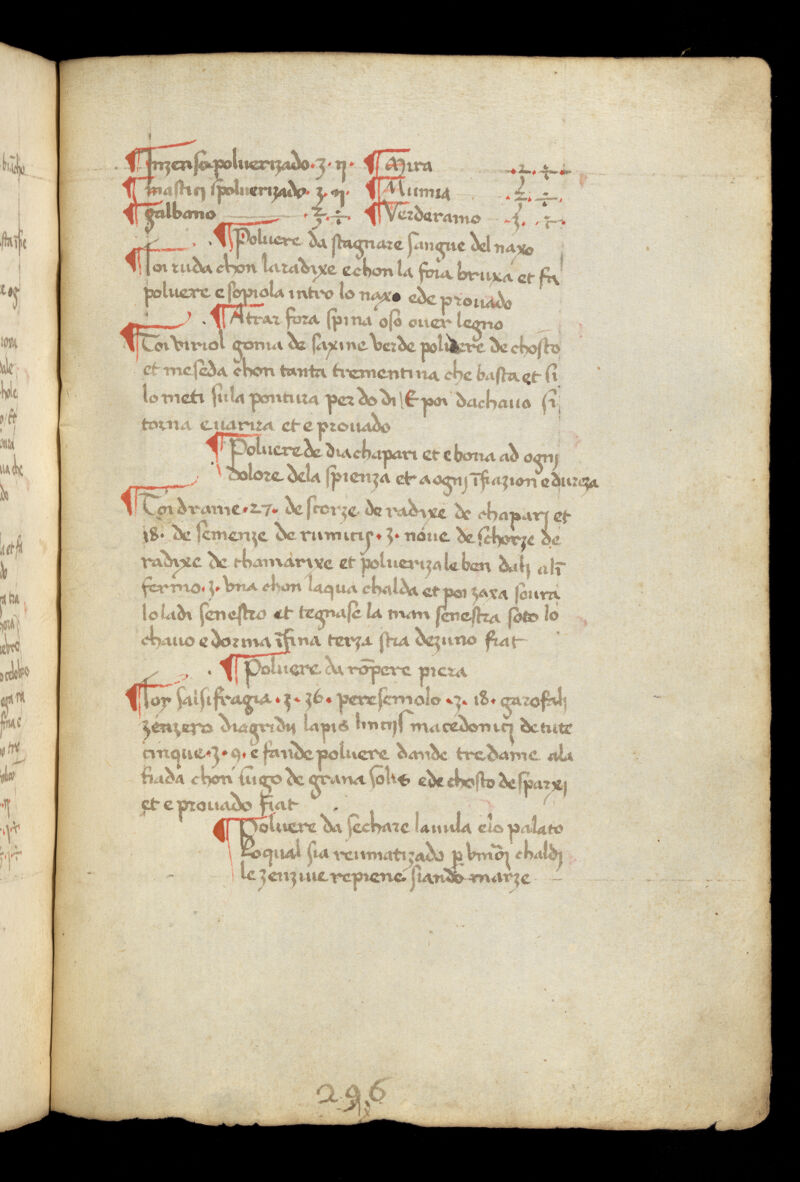 ¶ Inzenso polverizado · ʒ · ij · ¶ Mira · ℥ · ÷ ·
¶ mastici spolverizado · ʒ · ij · ¶ Mumia · ℥ · ÷ ·
¶ galbano · ℥ · ÷ ¶ Verderamo · ʒ · ÷ ·
¶ Polvere da stagnare sangue del naxo
¶ Toi ruda chon la radixe e chon la foia bruxa et fa
polvere e sopiola intro lo naxo ede provado
¶ A trar fora spina oso over legno
¶ Toi viriol goma de saxine verde polvere de chosto
et meseda chon tanta trementina che basta et si
lo meti su la pontura per do di E poi da chavo si
torna e varira et e provado
¶ Polvere de diachapari et e bona ad ogni
dolore dela spienza et a ogni ĩfiazion e dureza
¶ Toi drame · 27 · de scorze de radixe de chapari et
18 · de semenze de rumicis · ʒ · nove de schorze de
radixe de thamarixe et polverizale ben dali alĩ
fermo · ʒ · una chon laqua chalda et poi zaxa soura
lo ladi senestro et tegnase la man senestra soto lo
chavo e dorma ĩfina terza stia dezuno fiat
¶ Polvere da rõpere piera
¶ Toy salsifragia · ʒ · 36 · peresemolo · ʒ · 18 · garofali
zenzero diagridii lapis lincijs macedonici de tute
cinque · ʒ · 9 · e fande polvere dande tre dame ala
fiada chon sugo de grana solis ede chosto de sparxi
et e provado fiat
¶ Polvere da sechare la uula e lo palato
Lo qual sia reumatizado p umõri chaldi
le zenzive repiene siando marze
296